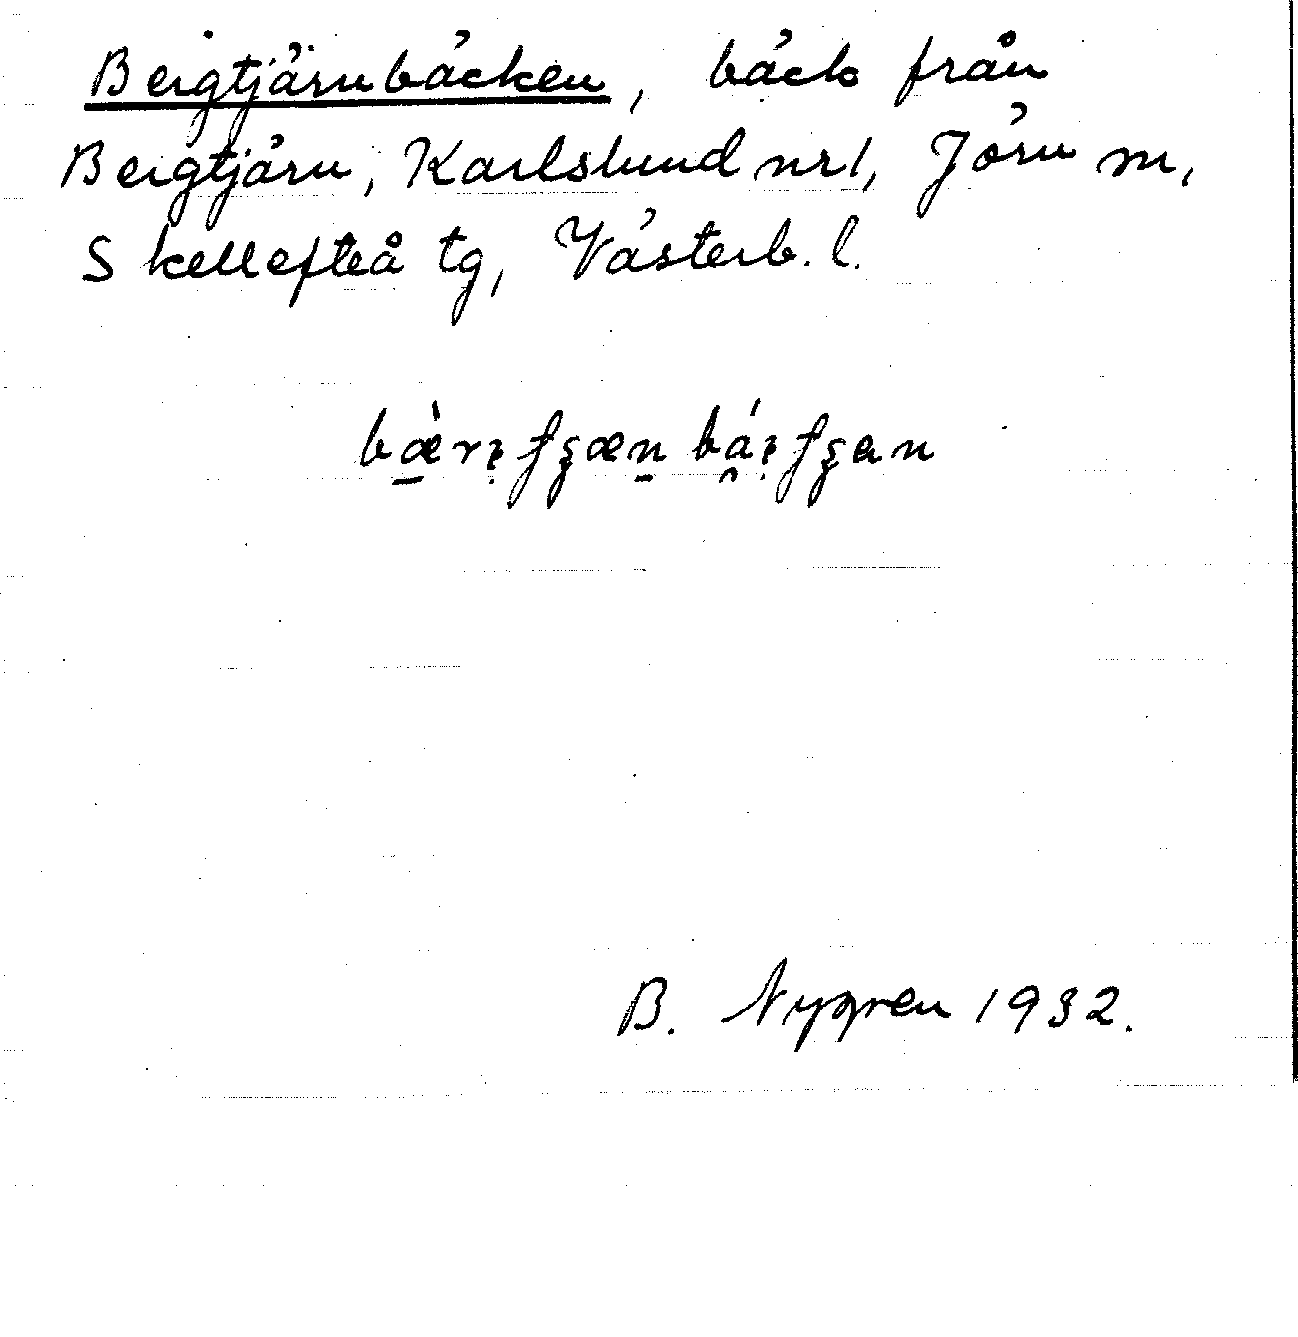 Bergtjärnbäcken, bäck från
Bergtjärn, Karlslund nr 1, Jörn m,
Skellefteå tg, Västerb. l.
B. Nygren 1932.